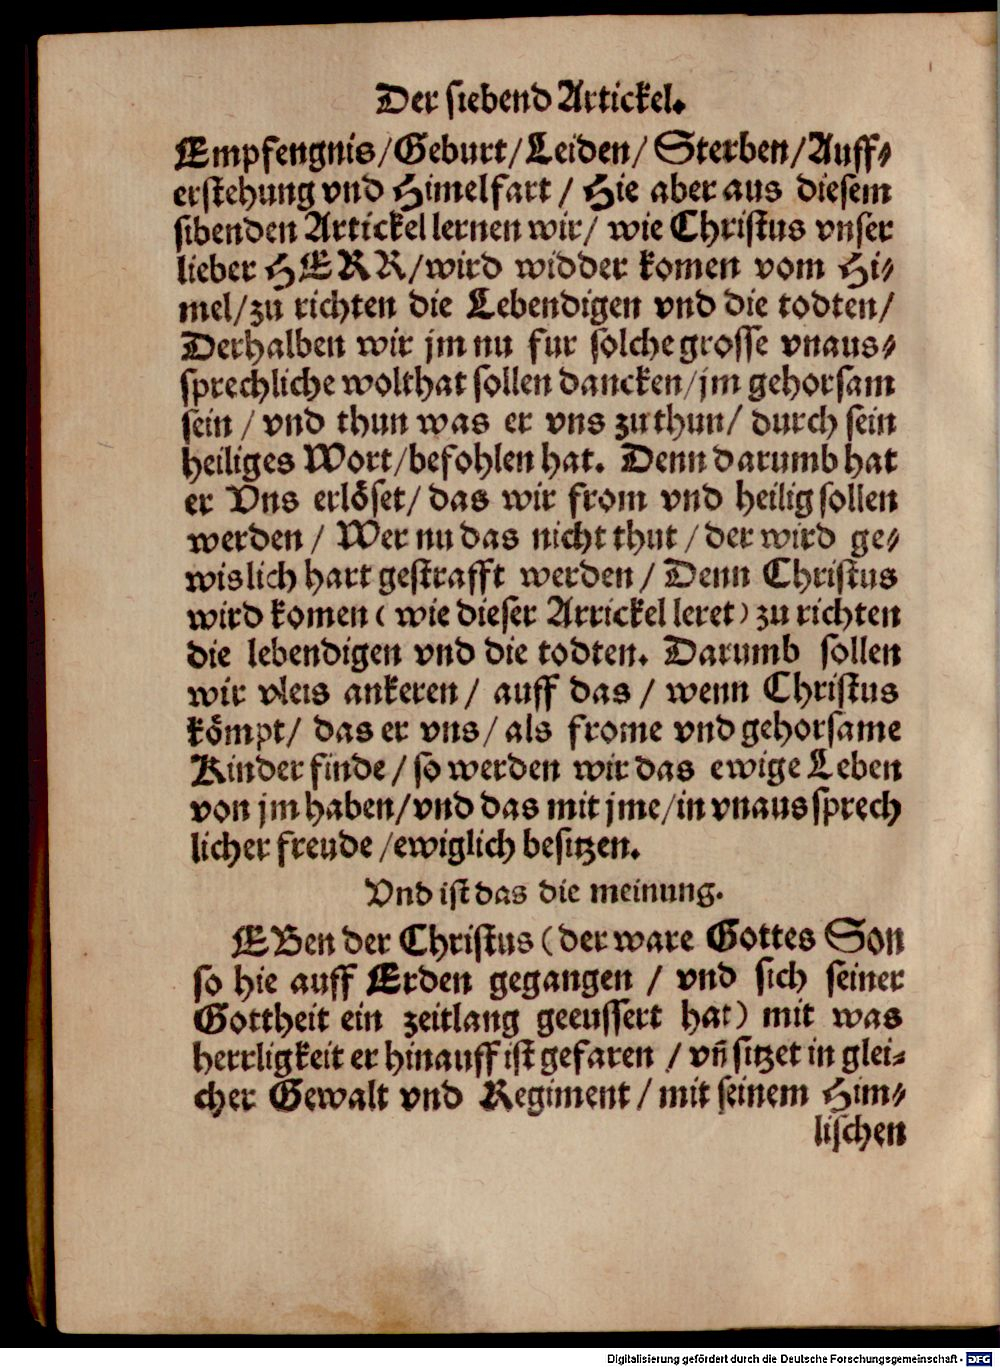 Der siebend Artickel.
Empfengnis/Geburt/Leiden/ Sterben/Auff⸗
erstehung vnd Himelfart / Hie aber aus diesem
sibenden Artickel lernen wir/ wie Christus vnser
lieber HERR/wird widder komen vom Hi⸗
mel/zu richten die Lebendigen vnd die todten/
Derhalben wir jm nu fur solche grosse vnaus⸗
sprechliche wolthat sollen dancken/jm gehorsam
sein / vnd thun was er vns zu thun/ durch sein
heiliges Wort/befohlen hat. Denn darumb hat
er Vns erlöset/ das wir from vnd heilig sollen
werden / Wer nu das nicht thut / der wird ge⸗
wislich hart gestrafft werden / Denn Christus
wird komen ( wie dieser Arrickel leret) zu richten
die lebendigen vnd die todten. Darumb sollen
wir vleis ankeren / auff das / wenn Christus
kömpt/ das er vns/ als frome vnd gehorsame
Kinder finde / so werden wir das ewige Leben
von jm haben/vnd das mit jme/in vnaussprech
licher freude /ewiglich besitzen.
Vnd ist das die meinung.
EBen der Christus (der ware Gottes Son
so hie auff Erden gegangen / vnd sich seiner
Gottheit ein zeitlang geeussert hat) mit was
herrligkeit er hinauff ist gefaren / vn̄ sitzet in glei⸗
cher Gewalt vnd Regiment / mit seinem Him⸗
lischen
Digitalisierung gefördert durch die Deutsche Forschungsgemeinschaft - DFG